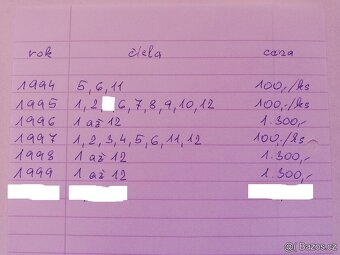 rok čísla cena
1994 5,6,11 100,-/ks
1995 1,2 6,7,8,9,10,12 100,-/ks
1996 1 až 12 1.300,-
1997 1,2,3,4,5,6,11,12 100,-/ks
1998 1 až 12 1.300,-
1999 1 až 12 1.300,-
Bazos.cz